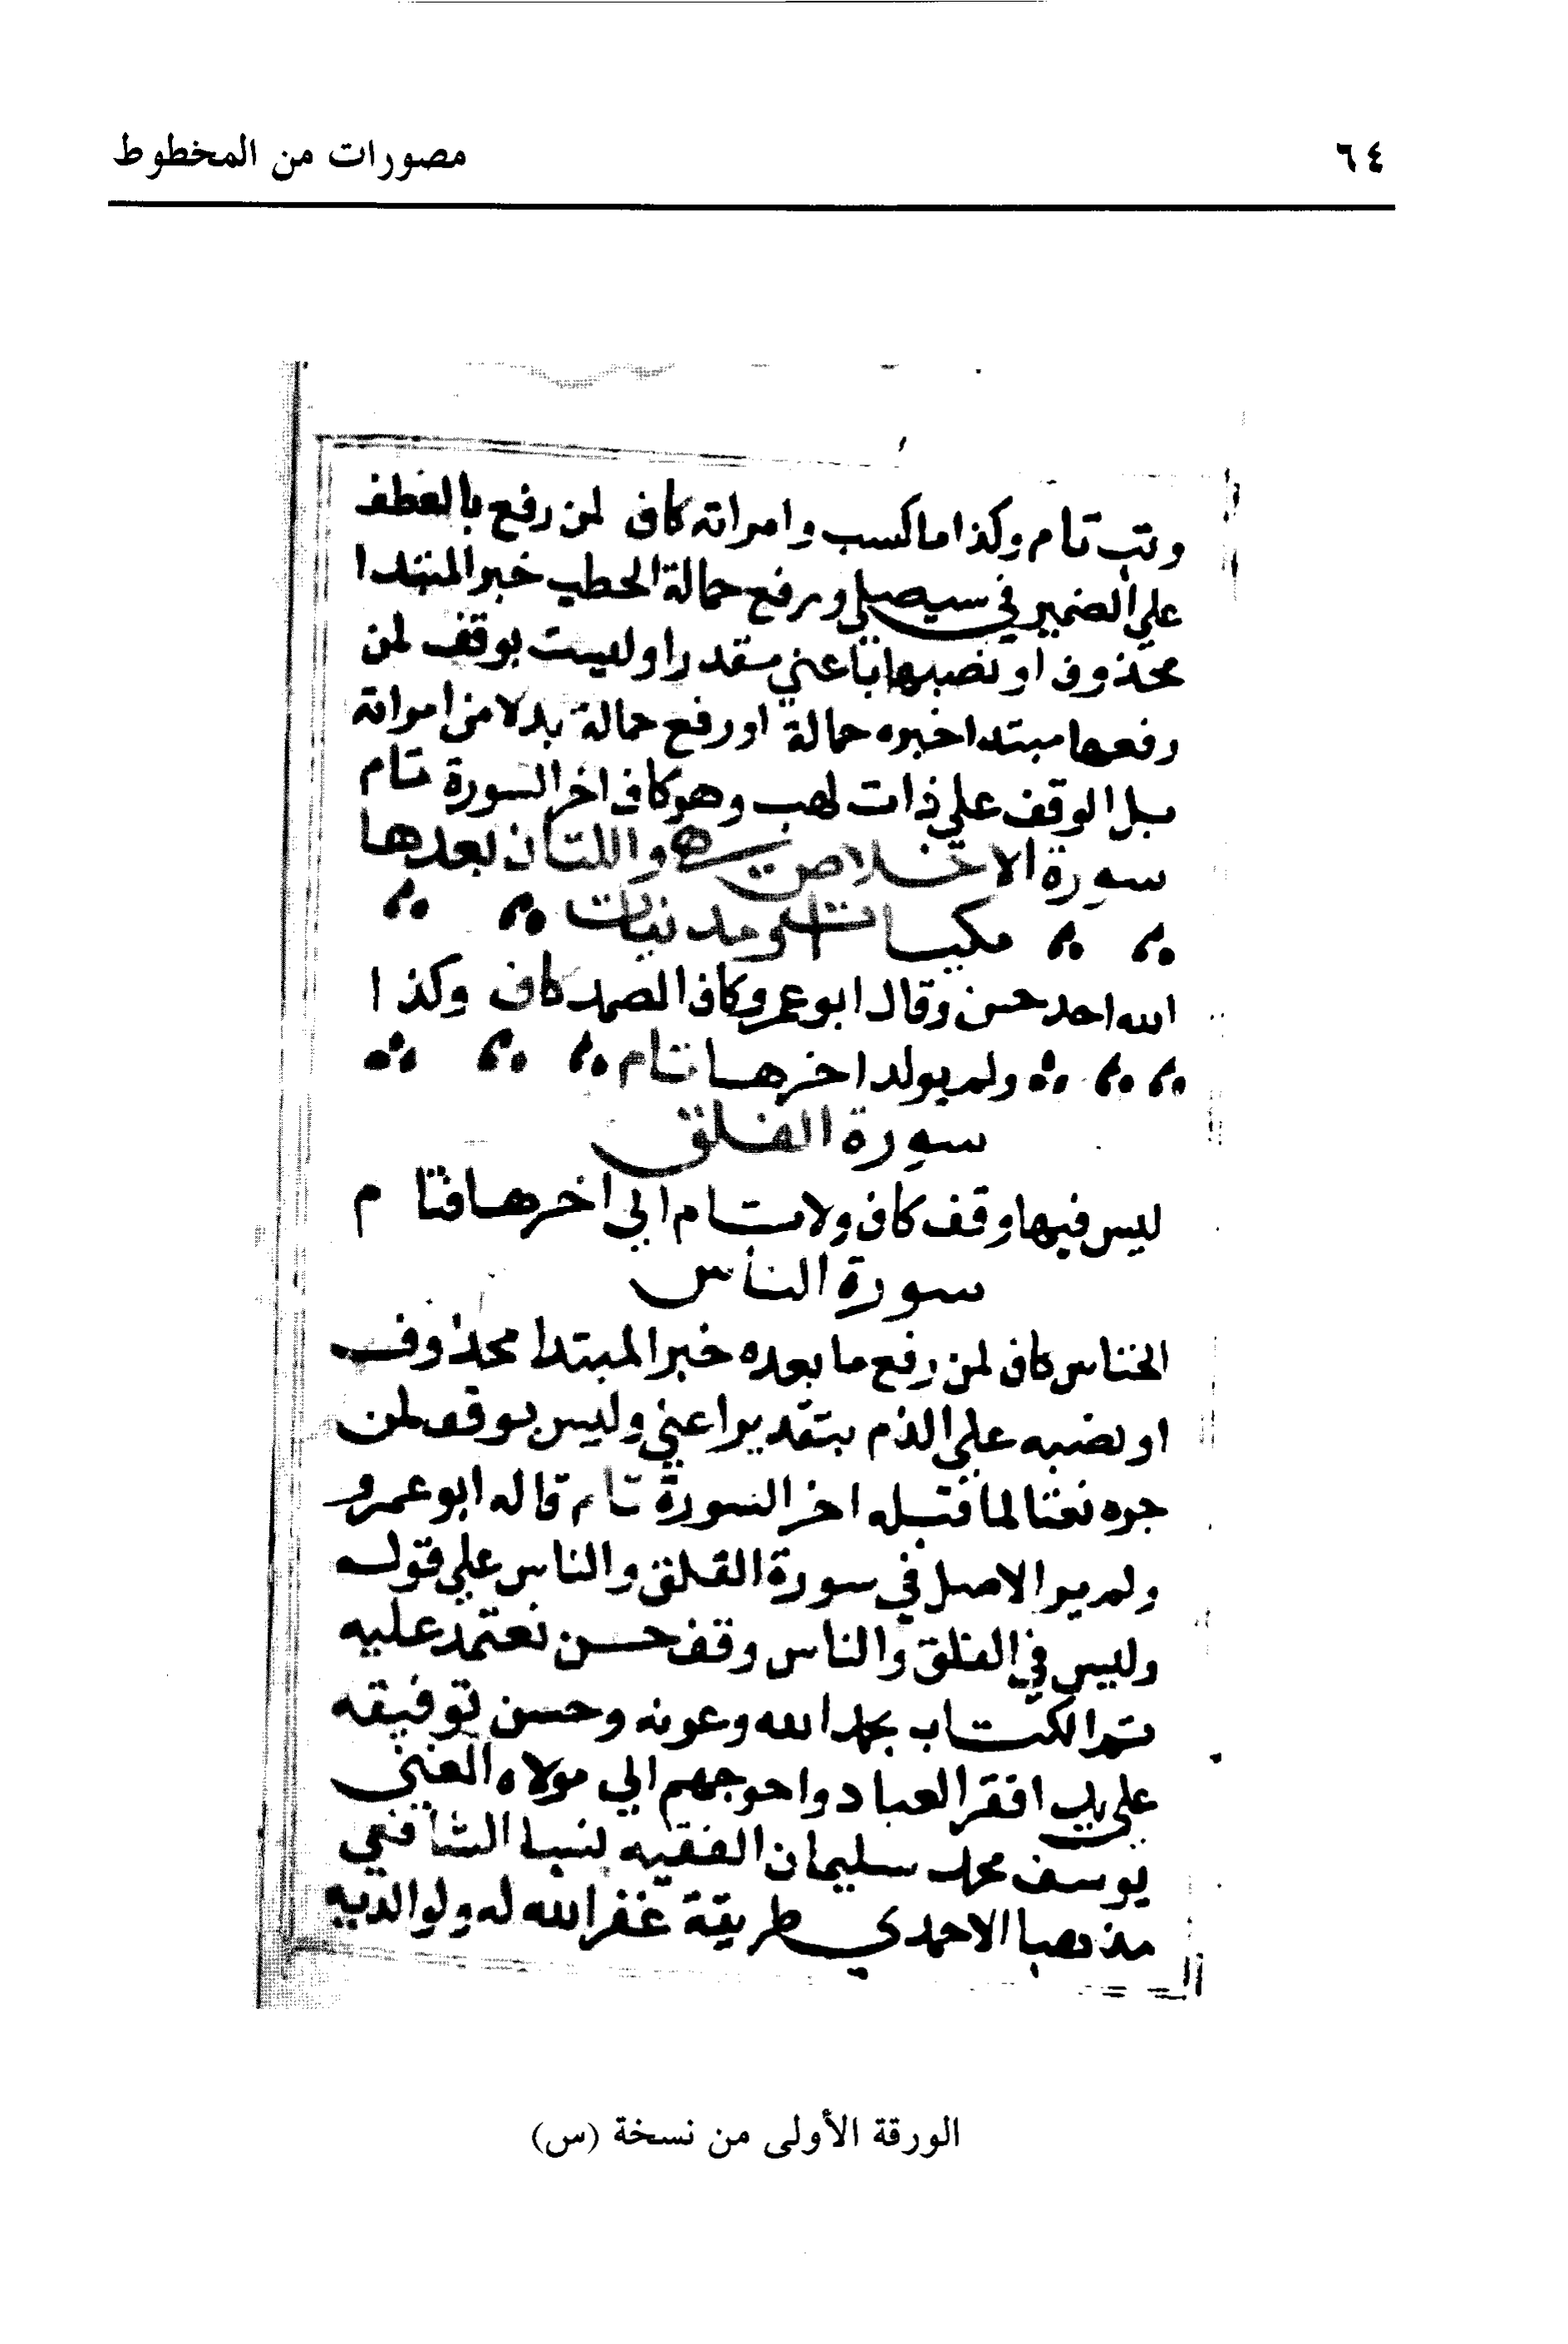 ٦٤
مصورات من المخطوط
وتب تام وكذا ما كسب وامراته كاف لمن رفع بالعطف
علي الضمير في سيصلي ورفع حمالة الحطب خبر المبتدا
محذوف او نصبها باعني مقدرا وليست بوقف لمن
رفعها مبتدا خبره حمالة او رفع حمالة بدلا من امراته
بل الوقف علي ذات لهب وهو كاف اخر السورة تام
سورة الاخلاص واللتان بعدها
مكيات او مدنيات
الله احد حسن وقال ابو عمرو كاف الصمد كاف وكذا
ولم يولد اخرها تام
سورة الفلق
ليس فيها وقف كاف ولا تام الي اخرها فتام
سورة الناس
الخناس كاف لمن رفع ما بعده خبر المبتدا محذوف
او نصبه علي الذم بتقدير اعني وليس بوقف لمن
جره نعتا لما قبله اخر السورة تام قاله ابو عمرو
ولم ير الاصل في سورة الفلق والناس علي قوله
وليس في الفلق والناس وقف حسن نعتمد عليه
تم الكتاب بحمد الله وعونه وحسن توفيقه
علي يد افقر العباد واحوجهم الي مولاه الغني
يوسف محمد سليمان الفقيه نسبا الشافعي
مذهبا الاحمدي طريقة غفر الله له ولوالديه
الورقة الأولى من نسخة (س)